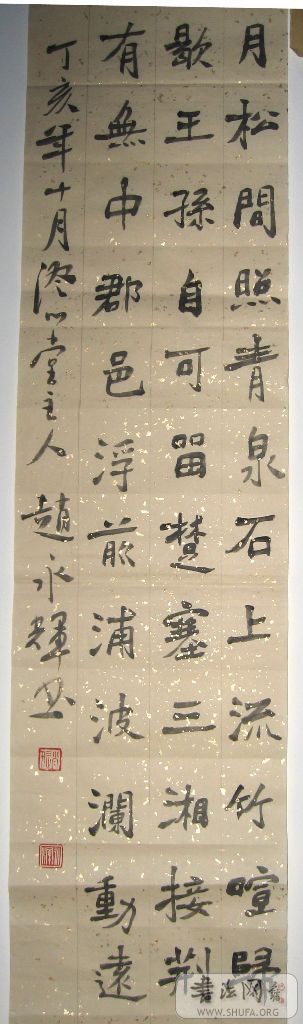 月松間照青泉石上流竹喧歸
歇王孫自可留楚塞三湘接荆
有無中郡邑浮前浦波瀾動遠
丁亥年十月澄心堂主人趙永輝书
書法网
WWW.SHUFA.ORG